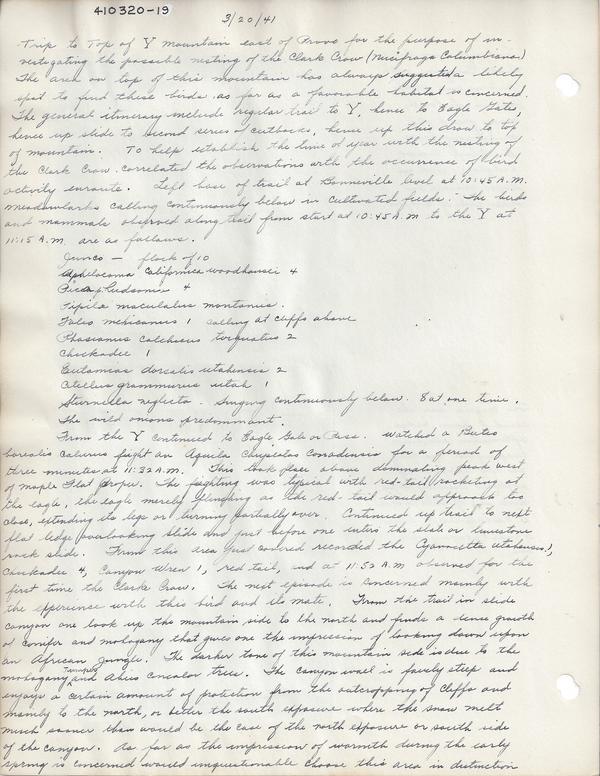 410320-19
3/20/41
Trip to Top of Y Mountain east of Provo for the purpose of in-
vestigating the possible nesting of the Clark Crow (Nucifraga Columbiana.)
The area on top of this mountain has always suggested a likely
spot to find these birds as far as a favorable habitat is concerned.
The general itinerary include regular trail to Y, hence to Eagle Gate,
hence up slide to second series of cutbacks, hence up this draw to top
of mountain. To help establish the time of year with the nesting of
the Clark Crow correlated the observations with the occurrence of bird
activity enroute. Left base of trail at Bonneville level at 10:45 A.M.
Meadowlarks calling continuously below in cultivated fields. The birds
and mammals observed along trail from start at 10:45 A.M to the Y at
11:15 A.M. are as follows.
Junco — flock of 10
Aphelocoma Californica woodhouseii 4
Pica p. hudsonia 4
Pipilo maculatus montanus.
Falco mexicanus 1 calling at cliffs above
Phasianus colchicus torquatus 2
Chickadee 1
Eutamias dorsalis utahensis 2
Citellus grammurus utah 1
Sturnella neglecta - Singing continuously below. 8 at one time.
The wild onions predominant.
From the Y continued to Eagle Gate or Pass. Watched a Buteo
borealis calurus fight an Aquila Chrysaetos Canadensis for a period of
three minutes at 11:32 A.M. This took place above dominating peak west
of Maple Flat proper. The fighting was typical with red-tail rocketing at
the eagle, the eagle merely flinching as the red-tail would approach too
close, extending its legs or turning partially over. Continued up trail to next
flat ledge overlooking slide and just before one enters the slate or limestone
rock slide. From this area just covered recorded the Cyanocitta 1,
Chickadee 4, Canyon Wren 1, red tail, and at 11:52 A.M observed for the
first time the Clark Crow. The next episode is concerned mainly with
the experience with this bird and its mate. From the trail in slide
canyon one look up the mountain side to the north and finds a dense growth
of conifer and mahogany that gives one the impression of looking down upon
an African Jungle. The darker tone of this mountain side is due to the
mahogany, Juniper, and Abies concolor trees. The canyon wall is fairly steep and
enjoys a certain amount of protection from the outcropping of cliffs and
mainly to the north, or better the south exposure where the snow melt
much sooner than would be the case of the north exposure or south side
of the canyon. As far as the impression of warmth during the early
spring is concerned would unquestionable choose this area in distinction